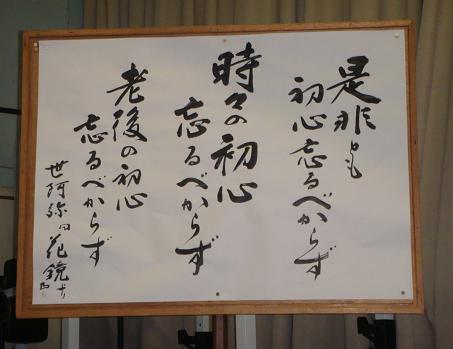 是非とも
初心忘るべからず
時々の初心
忘るべからず
老後の初心
忘るべからず
世阿弥の花鏡より